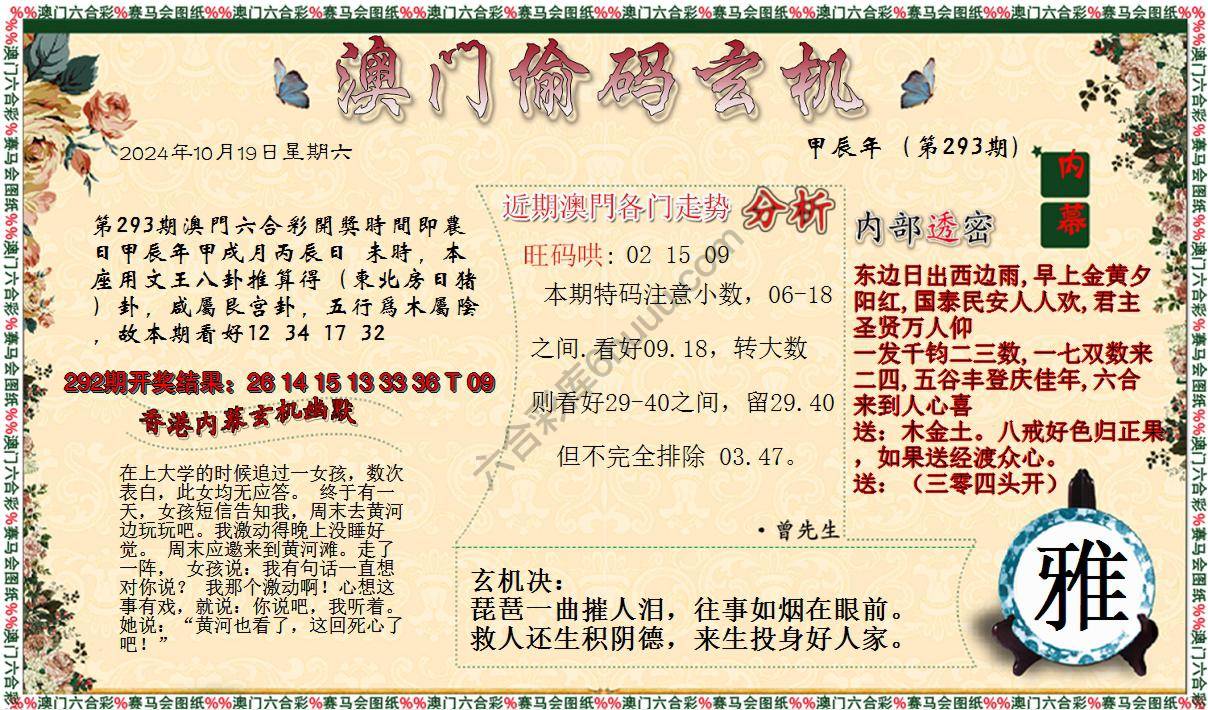 %%澳门六合彩%赛马会图纸%%澳门六合彩%赛马会图纸%%澳门六合彩%赛马会图纸%%澳门六合彩%赛马会图纸%%澳门六合彩%赛马会图纸%%澳门六合彩%赛马会图纸%%
澳门偷码玄机
2024年10月19日星期六
甲辰年（第293期）
内
幕
第293期澳門六合彩開獎時間即農
日甲辰年甲戌月丙辰日 未時，本
座用文王八卦推算得（東北房日猪
）卦，咸屬艮宫卦，五行爲木屬陰
，故本期看好12 34 17 32
292期开奖结果：26 14 15 13 33 36 T 09
香港内幕玄机幽默
在上大学的时候追过一女孩，数次
表白，此女均无应答。 终于有一
天，女孩短信告知我，周末去黄河
边玩玩吧。我激动得晚上没睡好
觉。 周末应邀来到黄河滩。走了
一阵， 女孩说：我有句话一直想
对你说？ 我那个激动啊！心想这
事有戏，就说：你说吧，我听着。
她说：“黄河也看了，这回死心了
吧！”
近期澳門各门走势 分析
旺码哄: 02 15 09
本期特码注意小数，06-18
之间.看好09.18，转大数
则看好29-40之间，留29.40
但不完全排除 03.47。
·曾先生
内部透密
东边日出西边雨,早上金黄夕
阳红,国泰民安人人欢,君主
圣贤万人仰
一发千钧二三数,一七双数来
二四,五谷丰登庆佳年,六合
来到人心喜
送：木金土。八戒好色归正果
，如果送经渡众心。
送：（三零四头开）
玄机决：
琵琶一曲摧人泪，往事如烟在眼前。
救人还生积阴德，来生投身好人家。
雅